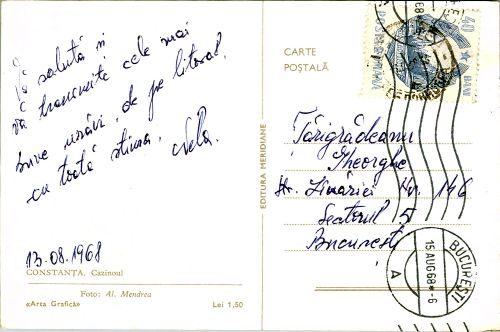 Vă salută și
vă transmite cele mai
bune urări, de pe litoral,
cu toată stima, Nela.
13.08.1968
CONSTANŢA. Cazinoul
Foto: Al. Mendrea
«Arta Grafică»
Lei 1,50
EDITURA MERIDIANE
CARTE
POŞTALĂ
40
BANI
POSTA ROMINA
Țărigrădeanu
Gheorghe
Str. Zinăriei Nr. 146
Sectorul 5
București
BUCUREŞTI
15 AUG 68 * -6
A